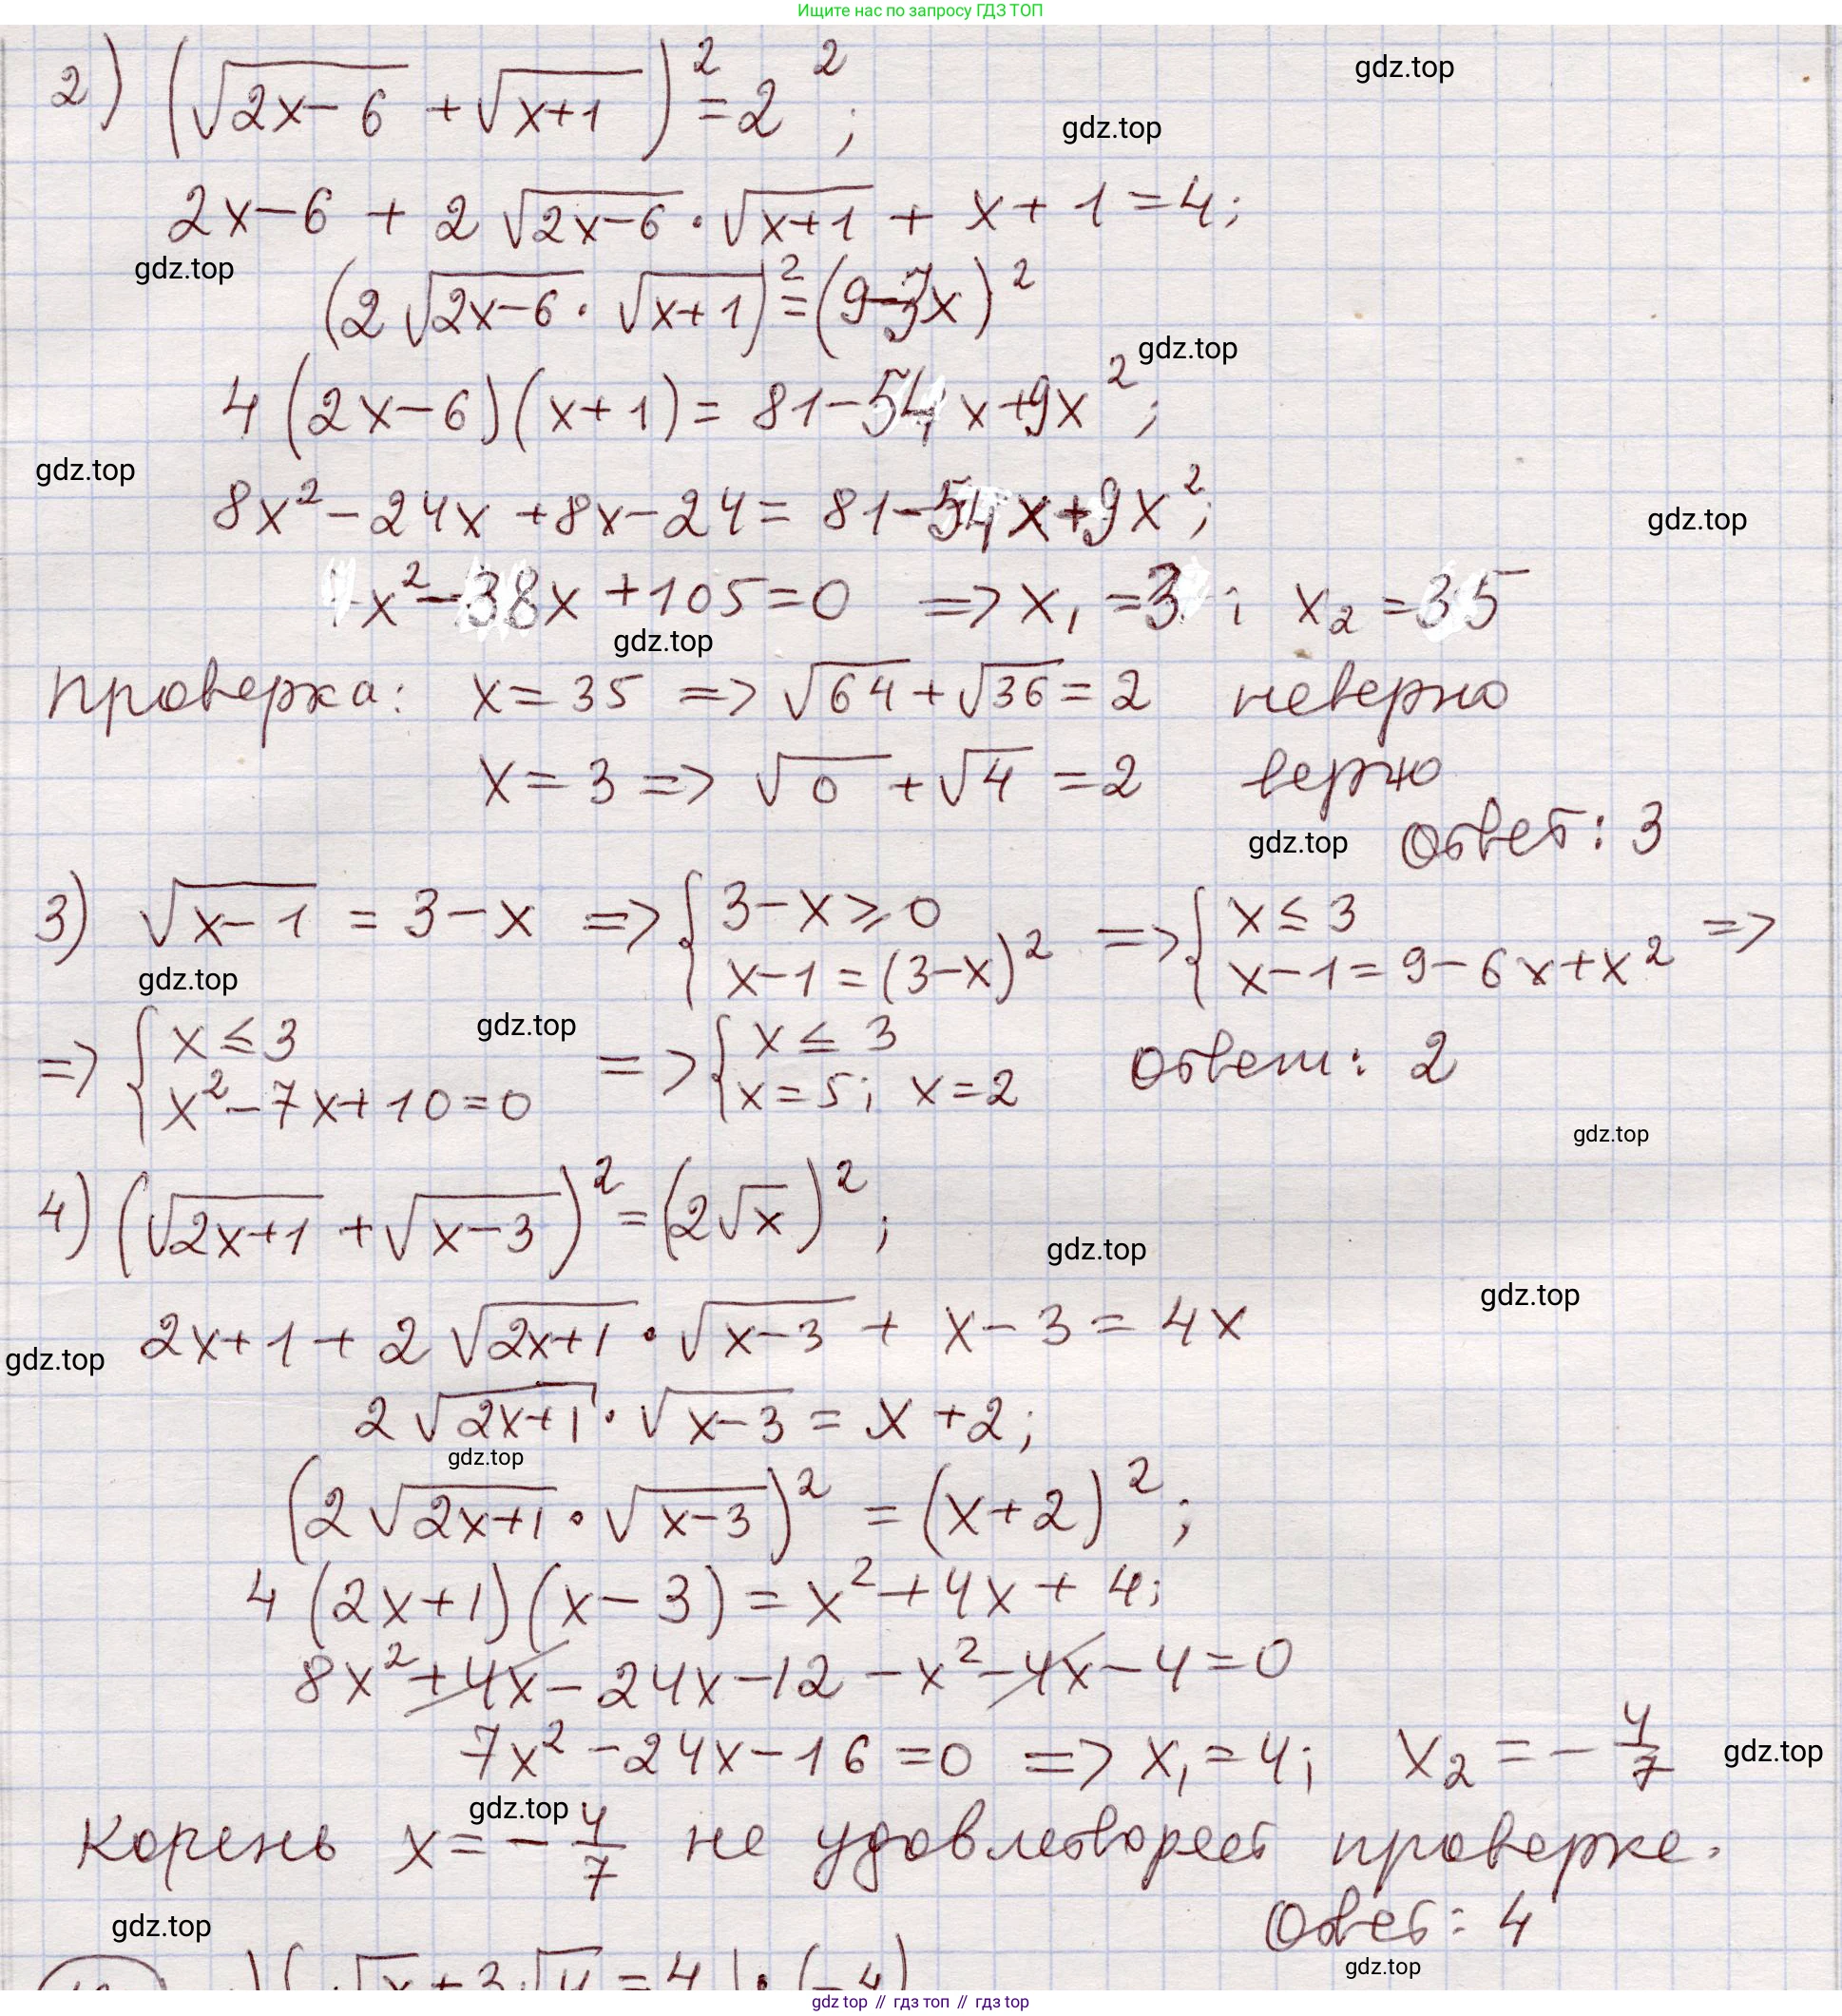 Ищите нас по запросу ГДЗ ТОП
2) (√(2x-6) + √(x+1))² = 2²;
gdz.top
gdz.top
2x-6 + 2√(2x-6) · √(x+1) + x+1 = 4;
gdz.top
(2√(2x-6) · √(x+1))² = (9-3x)²
gdz.top
4(2x-6)(x+1) = 81-54x+9x²;
gdz.top
8x²-24x+8x-24 = 81-54x+9x²;
gdz.top
x²-38x+105=0 => x₁=3; x₂=35
gdz.top
проверка: x=35 => √64+√36=2 неверно
x=3 => √0+√4=2 верно
gdz.top
Ответ: 3
3) √(x-1) = 3-x => { 3-x≥0 x-1=(3-x)² => { x≤3 x-1=9-6x+x² =>
gdz.top
gdz.top
=> { x≤3 x²-7x+10=0 => { x≤3 x=5; x=2 ответ: 2
gdz.top
4) (√(2x+1) + √(x-3))² = (2√x)²;
gdz.top
gdz.top
2x+1+2√(2x+1) · √(x-3) + x-3 = 4x
gdz.top
2√(2x+1) · √(x-3) = x+2;
gdz.top
(2√(2x+1) · √(x-3))² = (x+2)²;
4(2x+1)(x-3) = x²+4x+4;
8x²+4x-24x-12-x²-4x-4=0
7x²-24x-16=0 => x₁=4; x₂=-4/7
gdz.top
gdz.top
Корень x=-4/7 не удовлетворяет проверке.
gdz.top
Ответ: 4
gdz.top
√x+3√y=4 | · (-4)
gdz.top // гдз топ // гдз top